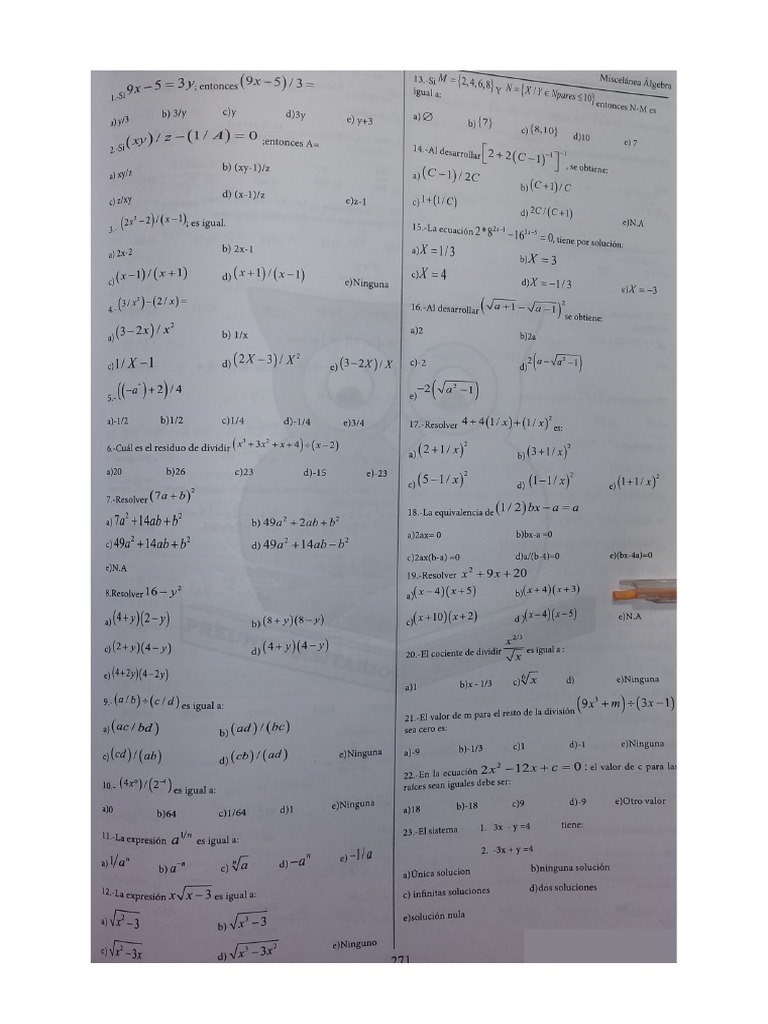 1.-Si 9x − 5 = 3y; entonces (9x − 5) / 3 =
a) y/3 b) 3/y c)y d)3y e) y+3
2.-Si (xy) / z − (1 / A) = 0 ;entonces A=
a) xy/z b) (xy-1)/z
c) z/xy d) (x-1)/z e)z-1
3.- (2x² − 2) / (x − 1); es igual.
a) 2x-2 b) 2x-1
c) (x − 1) / (x + 1) d) (x + 1) / (x − 1) e)Ninguna
4.- (3 / x²) − (2 / x) =
a) (3 − 2x) / x² b) 1/x
c) 1 / X − 1 d) (2X − 3) / X² e) (3 − 2X) / X
5.- ((−a°) + 2) / 4
a)-1/2 b)1/2 c)1/4 d)-1/4 e)3/4
6.-Cuál es el residuo de dividir (x³ + 3x² + x + 4) ÷ (x − 2)
a)20 b)26 c)23 d)-15 e)-23
7.-Resolver (7a + b)²
a) 7a² + 14ab + b² b) 49a² + 2ab + b²
c) 49a² + 14ab + b² d) 49a² + 14ab − b²
e)N.A
8.Resolver 16 − y²
a) (4 + y)(2 − y) b) (8 + y)(8 − y)
c) (2 + y)(4 − y) d) (4 + y)(4 − y)
e) (4+2y)(4−2y)
9.- (a / b) ÷ (c / d) es igual a:
a) (ac / bd) b) (ad) / (bc)
c) (cd) / (ab) d) (cb) / (ad) e)Ninguna
10.- (4x°) / (2⁻⁴) es igual a:
a)0 b)64 c)1/64 d)1 e)Ninguna
11.-La expresión a^{1/n} es igual a:
a) 1/aⁿ b) a⁻ⁿ c) ⁿ√a d) −aⁿ e) −1/a
12.-La expresión x√(x − 3) es igual a:
a) √(x² − 3) b) √(x³ − 3)
c) √(x² − 3x) d) √(x³ − 3x²) e)Ninguno
Miscelánea Álgebra
13.-Si M = {2,4,6,8} Y N = {X / Y ∈ Npares ≤ 10} entonces N-M es
igual a:
a) ∅ b) {7} c) {8,10} d)10 e) 7
14.-Al desarrollar [2 + 2(C − 1)⁻¹]⁻¹, se obtiene:
a) (C − 1) / 2C b) (C + 1) / C
c) 1 + (1 / C) d) 2C / (C + 1) e)N.A
15.-La ecuación 2 * 8^{2x−1} − 16^{3x−5} = 0, tiene por solución:
a) X = 1/3 b) X = 3
c) X = 4 d) X = −1/3 e) X = −3
16.-Al desarrollar (√(a + 1) − √(a − 1))² se obtiene:
a)2 b)2a
c)-2 d) 2(a − √(a² − 1))
e) −2(√(a² − 1))
17.-Resolver 4 + 4(1 / x) + (1 / x)² es:
a) (2 + 1 / x)² b) (3 + 1 / x)²
c) (5 − 1 / x)² d) (1 − 1 / x)² e) (1 + 1 / x)²
18.-La equivalencia de (1 / 2) bx − a = a
a)2ax= 0 b)bx-a =0
c)2ax(b-a) =0 d)a/(b-4)=0 e)(bx-4a)=0
19.-Resolver x² + 9x + 20
a) (x − 4)(x + 5) b) (x + 4)(x + 3)
c) (x + 10)(x + 2) d) (x − 4)(x − 5) e)N.A
20.-El cociente de dividir x^{2/3}/√x es igual a :
a)1 b)x - 1/3 c) ⁶√x d) e)Ninguna
21.-El valor de m para el resto de la división (9x³ + m) ÷ (3x − 1)
sea cero es:
a)-9 b)-1/3 c)1 d)-1 e)Ninguna
22.-En la ecuación 2x² − 12x + c = 0 : el valor de c para las
raíces sean iguales debe ser:
a)18 b)-18 c)9 d)-9 e)Otro valor
23.-El sistema 1. 3x - y =4 tiene:
2. -3x + y =4
a)Única solucion b)ninguna solución
c) infinitas soluciones d)dos soluciones
e)solución nula
271